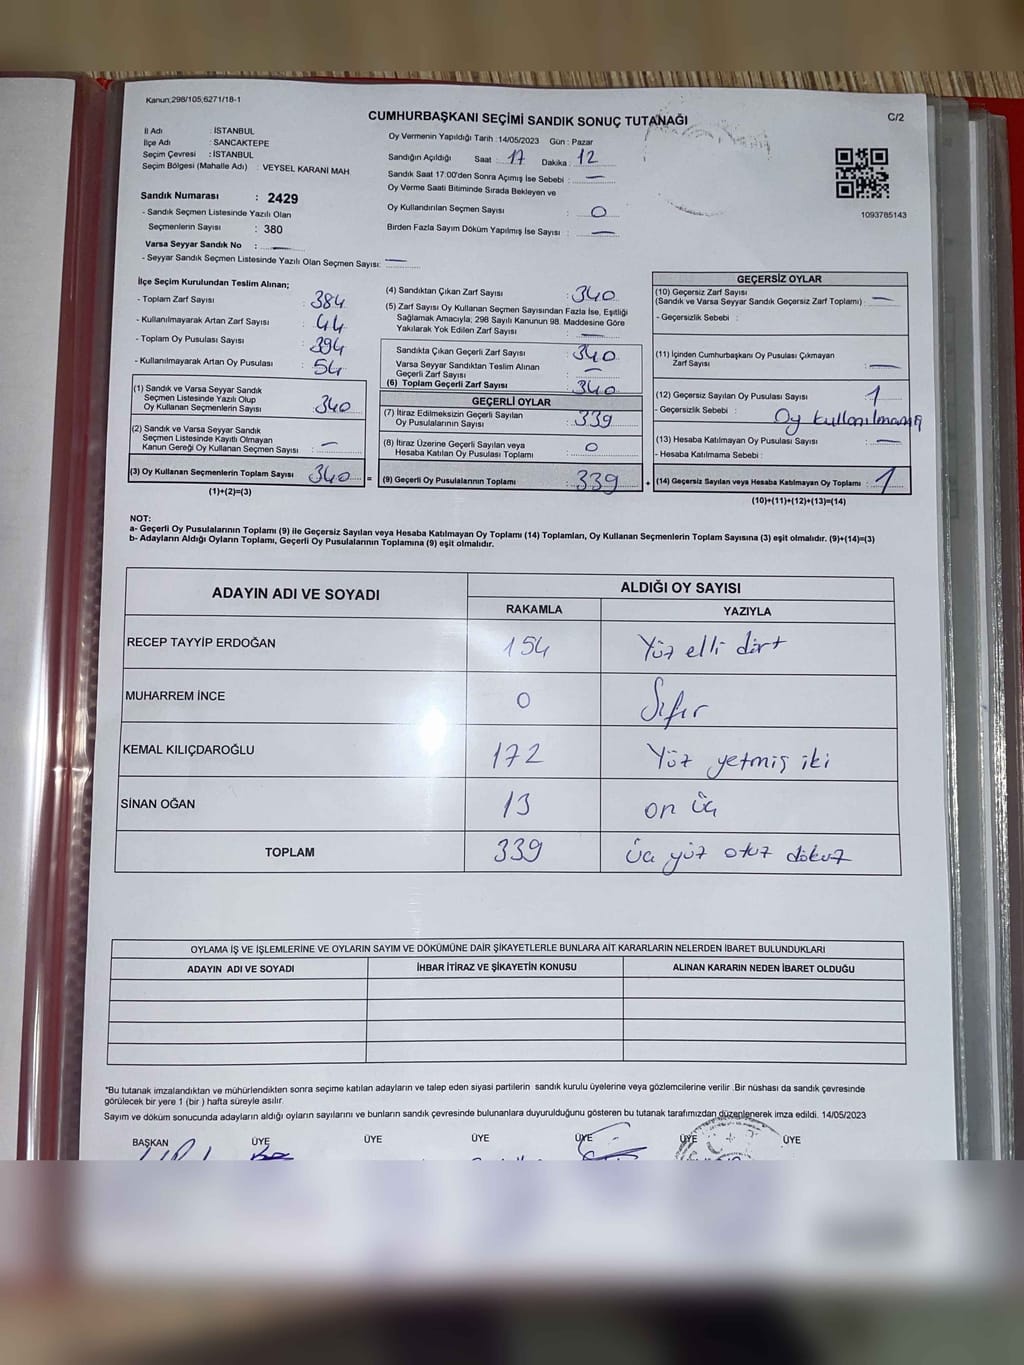 Kanun;298/105,6271/18-1
CUMHURBAŞKANI SEÇİMİ SANDIK SONUÇ TUTANAĞI
C/2
İl Adı : İSTANBUL
İlçe Adı : SANCAKTEPE
Seçim Çevresi : İSTANBUL
Seçim Bölgesi (Mahalle Adı) : VEYSEL KARANİ MAH
Sandık Numarası : 2429
- Sandık Seçmen Listesinde Yazılı Olan
Seçmenlerin Sayısı : 380
Varsa Seyyar Sandık No : —
- Seyyar Sandık Seçmen Listesinde Yazılı Olan Seçmen Sayısı: —
Oy Vermenin Yapıldığı Tarih : 14/05/2023 Gün : Pazar
Sandığın Açıldığı Saat : 17 Dakika : 12
Sandık Saat 17:00'den Sonra Açımış İse Sebebi : —
Oy Verme Saati Bitiminde Sırada Bekleyen ve
Oy Kullandırılan Seçmen Sayısı : 0
Birden Fazla Sayım Döküm Yapılmış İse Sayısı : —
1093785143
İlçe Seçim Kurulundan Teslim Alınan;
- Toplam Zarf Sayısı : 384
- Kullanılmayarak Artan Zarf Sayısı : 44
- Toplam Oy Pusulası Sayısı : 394
- Kullanılmayarak Artan Oy Pusulası : 54
(1) Sandık ve Varsa Seyyar Sandık
Seçmen Listesinde Yazılı Olup
Oy Kullanan Seçmenlerin Sayısı : 340
(2) Sandık ve Varsa Seyyar Sandık
Seçmen Listesinde Kayıtlı Olmayan
Kanun Gereği Oy Kullanan Seçmen Sayısı : —
(3) Oy Kullanan Seçmenlerin Toplam Sayısı : 340 =
(1)+(2)=(3)
(4) Sandıktan Çıkan Zarf Sayısı : 340
(5) Zarf Sayısı Oy Kullanan Seçmen Sayısından Fazla İse, Eşitliği
Sağlamak Amacıyla; 298 Sayılı Kanunun 98. Maddesine Göre
Yakılarak Yok Edilen Zarf Sayısı : —
Sandıkta Çıkan Geçerli Zarf Sayısı : 340
Varsa Seyyar Sandıktan Teslim Alınan
Geçerli Zarf Sayısı : —
(6) Toplam Geçerli Zarf Sayısı : 340
GEÇERLİ OYLAR
(7) İtiraz Edilmeksizin Geçerli Sayılan
Oy Pusulalarının Sayısı : 339
(8) İtiraz Üzerine Geçerli Sayılan veya
Hesaba Katılan Oy Pusulası Toplamı : 0
(9) Geçerli Oy Pusulalarının Toplamı : 339 +
GEÇERSİZ OYLAR
(10) Geçersiz Zarf Sayısı
(Sandık ve Varsa Seyyar Sandık Geçersiz Zarf Toplamı) : —
- Geçersizlik Sebebi :
(11) İçinden Cumhurbaşkanı Oy Pusulası Çıkmayan
Zarf Sayısı : —
(12) Geçersiz Sayılan Oy Pusulası Sayısı : 1
- Geçersizlik Sebebi : Oy kullanılmamış
(13) Hesaba Katılmayan Oy Pusulası Sayısı : —
- Hesaba Katılmama Sebebi :
(14) Geçersiz Sayılan veya Hesaba Katılmayan Oy Toplamı : 1
(10)+(11)+(12)+(13)=(14)
NOT:
a- Geçerli Oy Pusulalarının Toplamı (9) ile Geçersiz Sayılan veya Hesaba Katılmayan Oy Toplamı (14) Toplamları, Oy Kullanan Seçmenlerin Toplam Sayısına (3) eşit olmalıdır. (9)+(14)=(3)
b- Adayların Aldığı Oyların Toplamı, Geçerli Oy Pusulalarının Toplamına (9) eşit olmalıdır.
ADAYIN ADI VE SOYADI ALDIĞI OY SAYISI
RAKAMLA YAZIYLA
RECEP TAYYİP ERDOĞAN 154 Yüz elli dört
MUHARREM İNCE 0 Sıfır
KEMAL KILIÇDAROĞLU 172 Yüz yetmiş iki
SİNAN OĞAN 13 on üç
TOPLAM 339 üç yüz otuz dokuz
OYLAMA İŞ VE İŞLEMLERİNE VE OYLARIN SAYIM VE DÖKÜMÜNE DAİR ŞİKAYETLERLE BUNLARA AİT KARARLARIN NELERDEN İBARET BULUNDUKLARI
ADAYIN ADI VE SOYADI İHBAR İTİRAZ VE ŞİKAYETİN KONUSU ALINAN KARARIN NEDEN İBARET OLDUĞU
*Bu tutanak imzalandıktan ve mühürlendikten sonra seçime katılan adayların ve talep eden siyasi partilerin sandık kurulu üyelerine veya gözlemcilerine verilir .Bir nüshası da sandık çevresinde
görülecek bir yere 1 (bir ) hafta süreyle asılır.
Sayım ve döküm sonucunda adayların aldığı oyların sayılarını ve bunların sandık çevresinde bulunanlara duyurulduğunu gösteren bu tutanak tarafımızdan düzenlenerek imza edildi. 14/05/2023
BAŞKAN ÜYE ÜYE ÜYE ÜYE ÜYE ÜYE